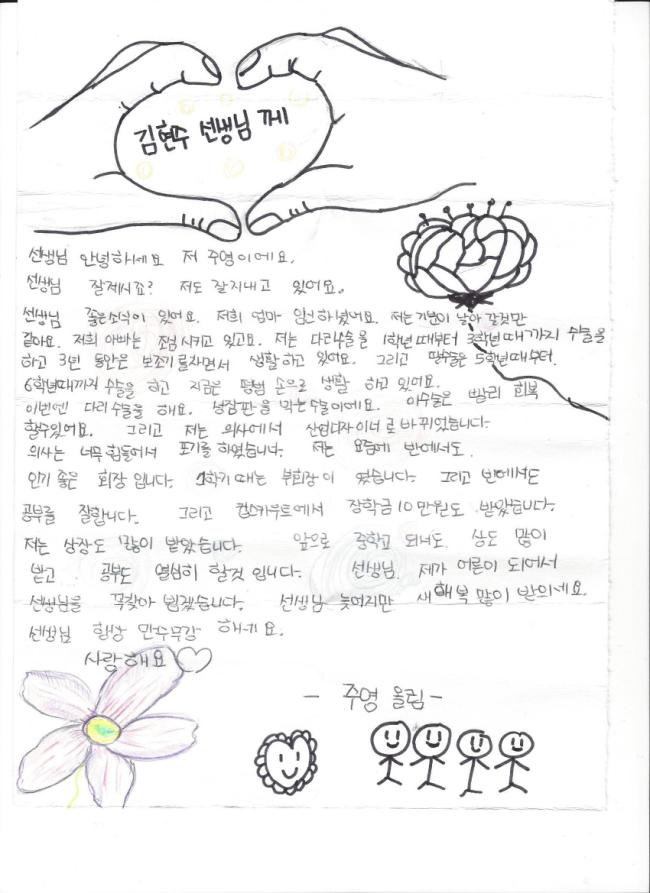 김현수 선생님 께
선생님 안녕하세요 저 주영이에요.
선생님 잘계시죠? 저도 잘지내고 있어요.
선생님 좋은소식이 있어요. 저희 엄마 임신하셨어요. 저는 기분이 날아 갈것만
같아요. 저희 아빠는 조심 시키고 있고요. 저는 다리수술을 1학년때부터 3학년때까지 수술을
하고 3년 동안은 보조기를차면서 생활하고 있어요. 그리고 손수술은 5학년때부터.
6학년때까지 수술을 하고 지금은 평범 손으로 생활 하고 있어요.
이번엔 다리수술을 해요. 성장판을 막는수술이에요. 이수술은 빨리 회복
할수있어요. 그리고 저는 의사에서 산업디자이너로 바뀌었습니다.
의사는 너무 힘들어서 포기를 하였습니다. 저는 요즘에 반에서도.
인기 좋은 회장 입니다. 1학기 때는 부회장이 였습니다. 그리고 반에서도
공부를 잘합니다. 그리고 컵스카우트에서 장학금 10만원도 받았습니다.
저는 상장도 많이 받았습니다. 앞으로 중학교 되서도. 상도 많이
받고 공부도 열심히 할것 입니다. 선생님. 제가 어른이 되어서
선생님을 꼭찾아 뵙겠습니다. 선생님 늦어지만 새해복 많이 받으세요.
선생님 항상 만수무강 하세요.
사랑해요
- 주영 올림 -